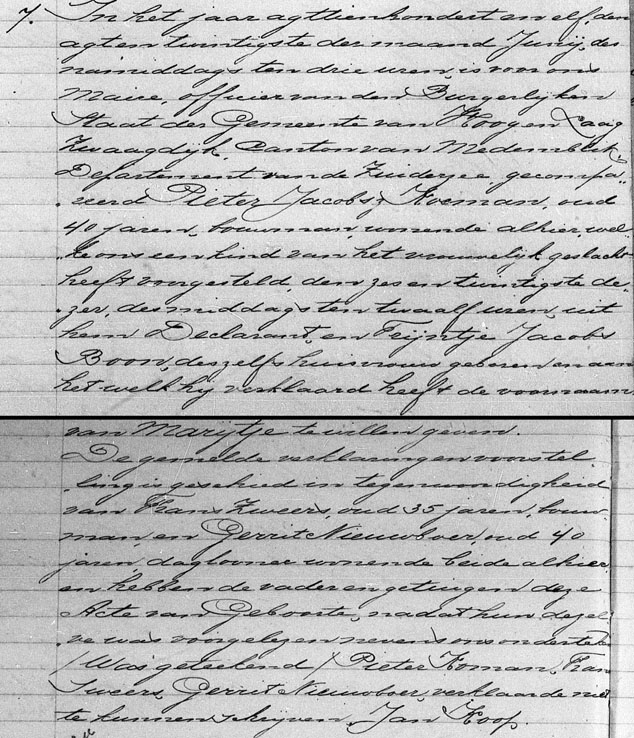 7. In het jaar agttienhondert en elf, den
agt en twintigste der maand Junij, des
namiddags ten drie uren, is voor ons
Maire, officier van den Burgerlijken
Staat der Gemeente van Hoog en Laag
Zwaagdijk, Canton van Medemblik
Departement van de Zuiderzee gecompa„
„reerd Pieter Jacobsz Koeman, oud
40 jaren, bouwman, wonende alhier, wel„
„ke ons een kind van het vrouwelijk geslacht
heeft voorgesteld, den zes en twintigste de„
„zer, des middags ten twaalf uren, uit
hem Declarant, en Trijntje Jacobs
Boon, deszelfs huisvrouw geboren en aan
het welk hij verklaard heeft de voornaam
van Marijtje te willen geven.
De gemelde verklaringen voorstel
„ling is geschied in tegenwoordigheid
van Frans Zweers, oud 35 jaren, bouw
man, en Gerrit Nieuwboer, oud 40
jaren, daglooner wonende beide alhier,
en hebben de vader en getuigen deze
Acte van Geboorte, nadat hun dezel
„ve was voorgelezen nevens ons ondertek
/Was geteekend/ Pieter Koman, Fran
Sweers, Gerrit Nieuwboer, verklaarde niet
te kunnen schrijven, Jan Koop.